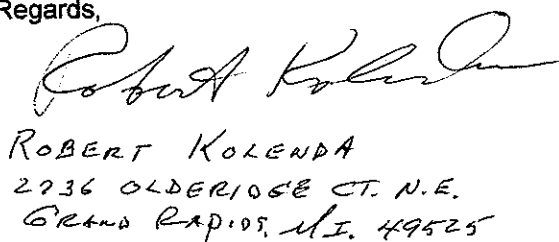 Regards,
Robert Kolenda
ROBERT KOLENDA
2736 OLDERIDGE CT. N.E.
GRAND RAPIDS, MI. 49525